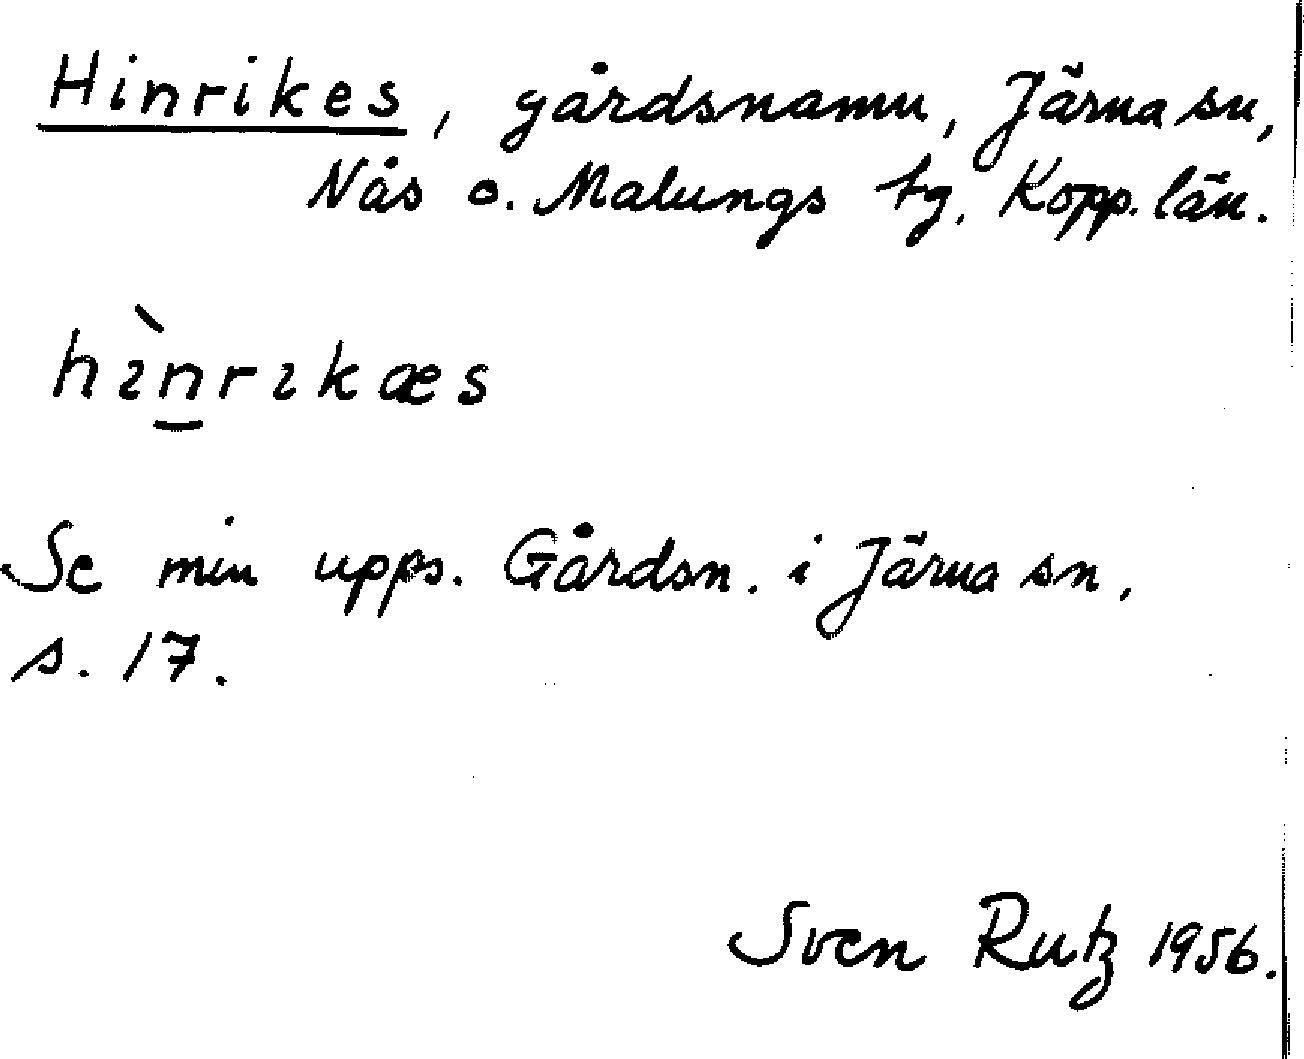 Hinrikes, gårdsnamn, Järna sn,
Nås o. Malungs tg, Kopp. län.
hɪ̀n̲rɪkæs
Se min upps. Gårdsn. i Järna sn,
s. 17.
Sven Rutz 1956.